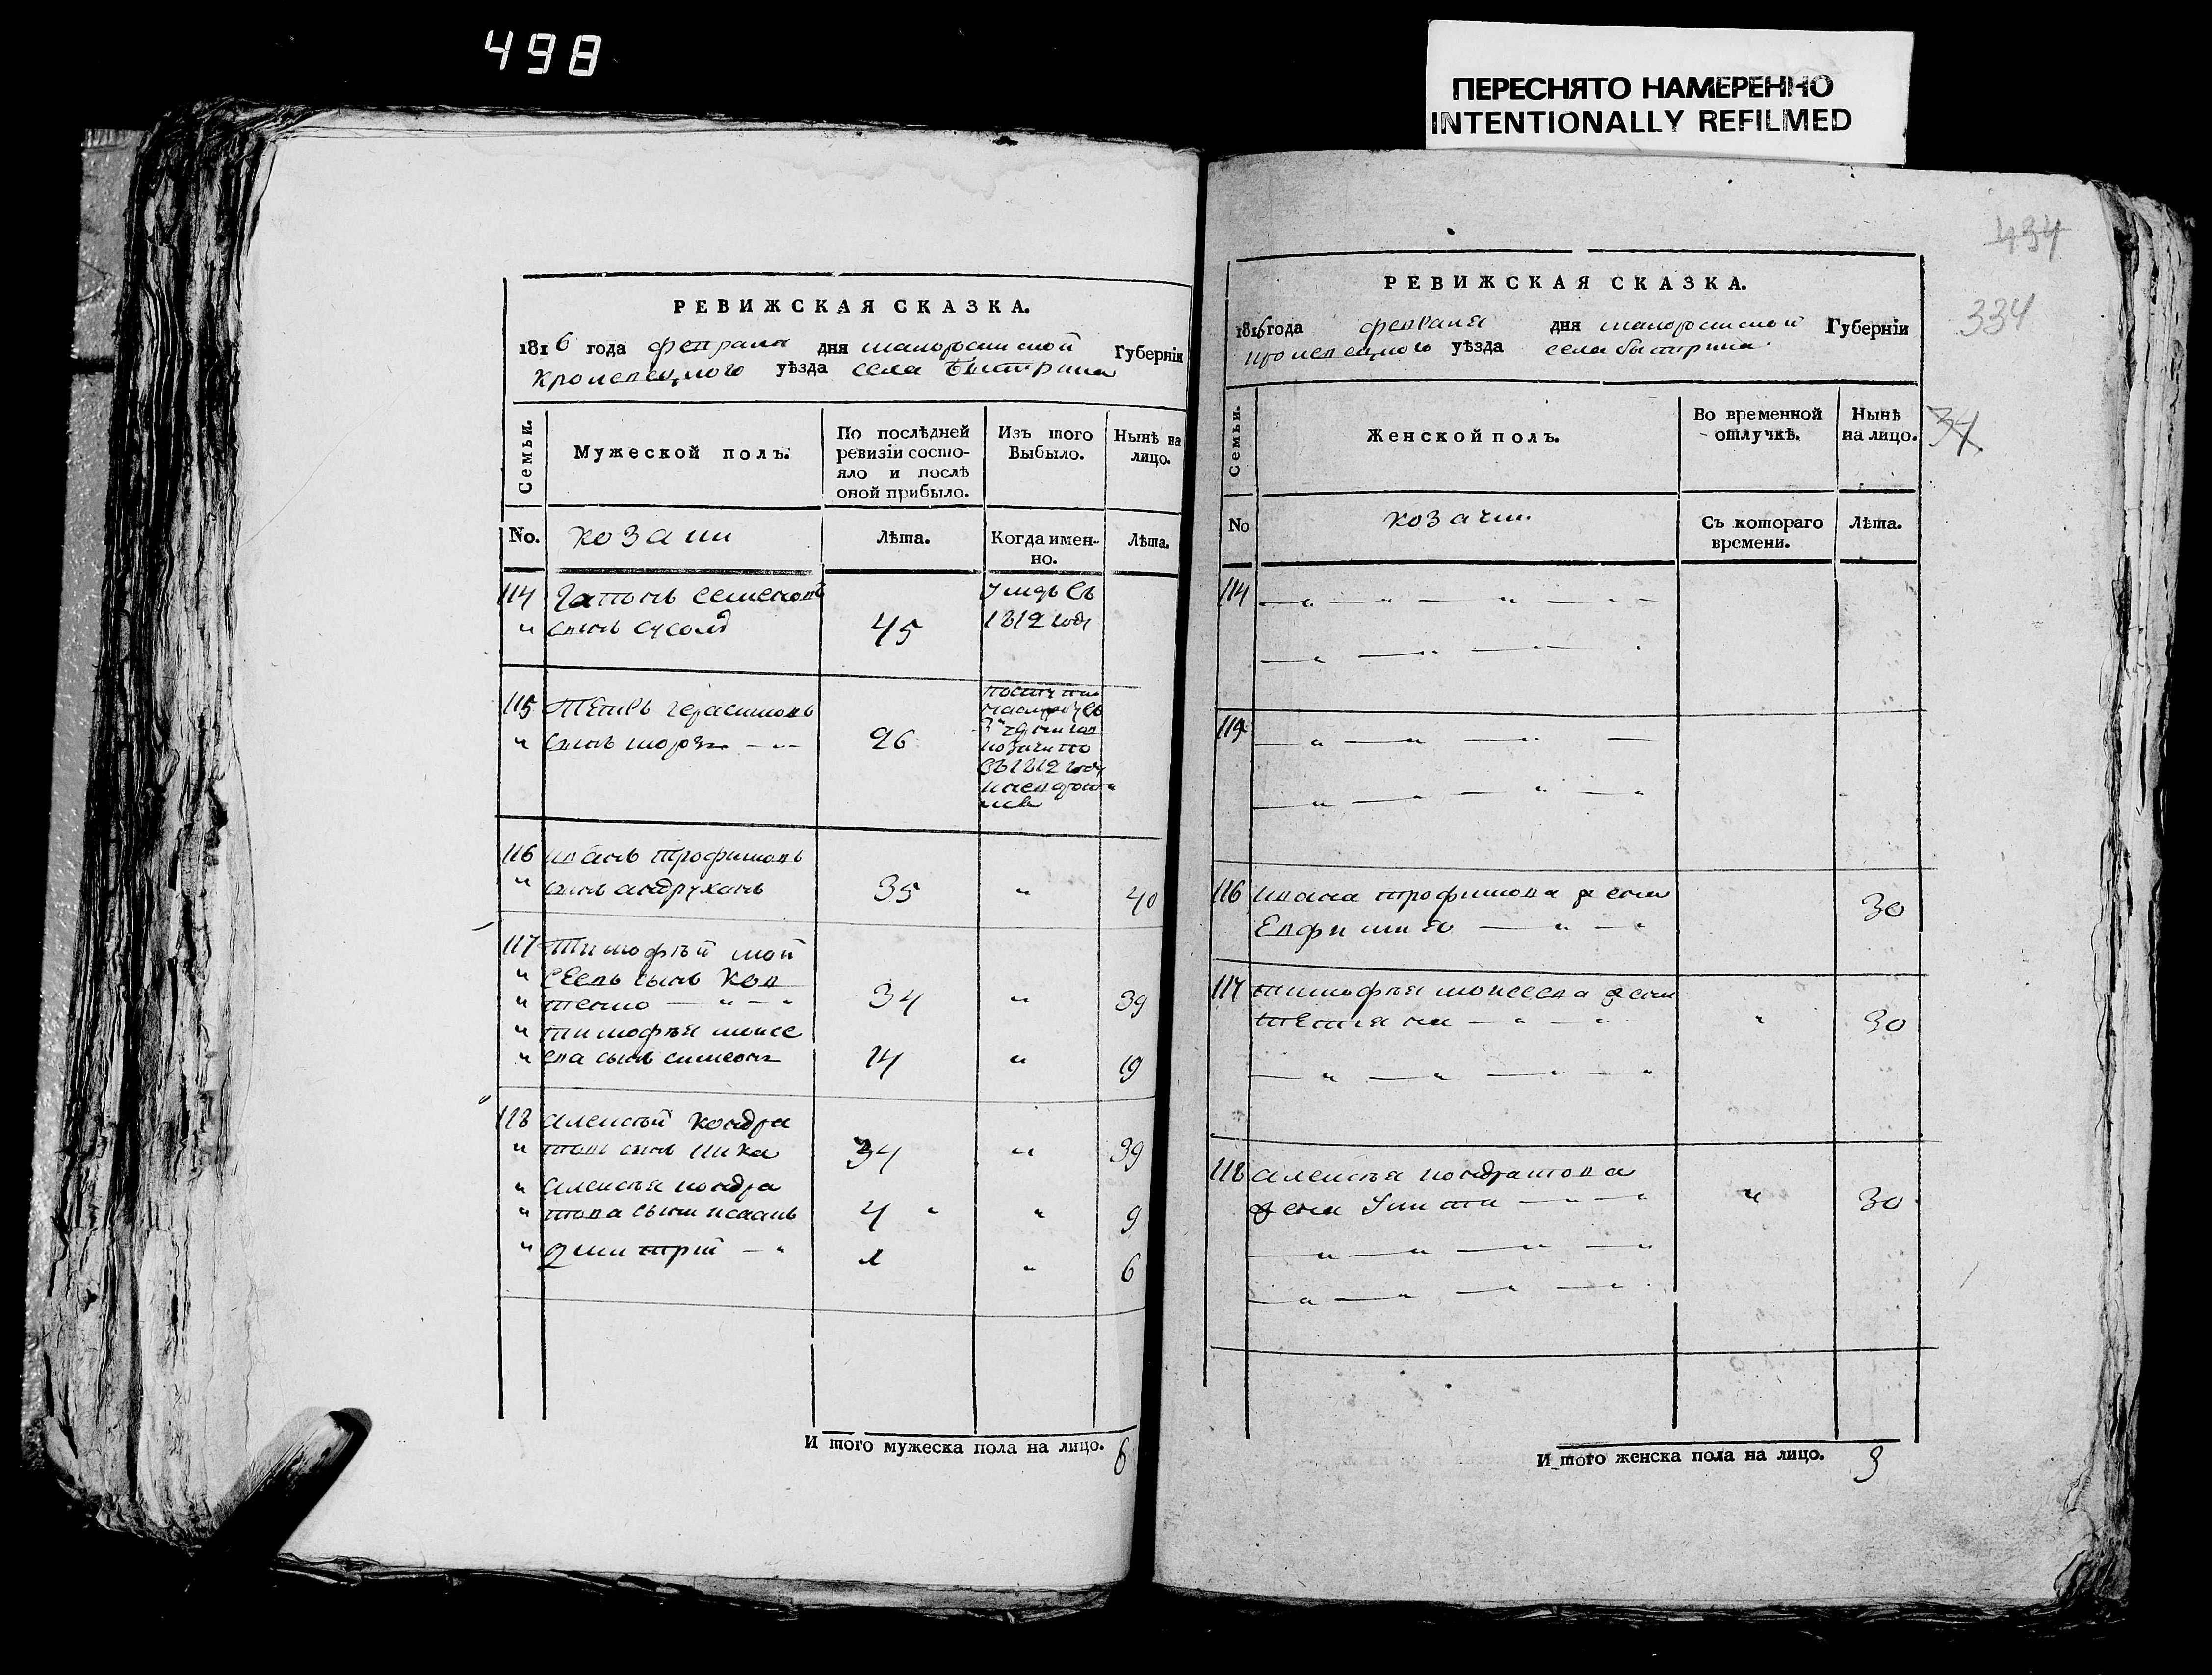 498
ПЕРЕСНЯТО НАМЕРЕННО
INTENTIONALLY REFILMED
РЕВИЖСКАЯ СКАЗКА.
1816 года февраля дня малороссійской Губерніи
Кролевецкого уѣзда села Быстрика
Семьи.
Мужеской полъ.
По послѣдней
ревизіи состо-
яло и послѣ
оной прибыло.
Изъ того
Выбыло.
Нынѣ на
лицо.
No.
козаки
Лѣта.
Когда имен-
но.
Лѣта.
114 семеновъ
" сынъ 45
1812 годе
115 Петръ герасимовъ
" сынъ 26
въ 1812 году
116 иванъ трофимовъ
" сынъ андруханъ 35 " 40
117 Тимофѣй мой
" сеевъ сынъ Ков
" тепко — " — " 34 " 39
" тимофея моисе
" ева сынъ симеонъ 14 " 19
118 алексѣй кондра
" товъ сынъ 34 " 39
" алексѣя кондра
" това сыни исаакъ 4 " " 9
" дмитрій — " 1 " 6
И того мужеска пола на лицо. 6
434
334
34
РЕВИЖСКАЯ СКАЗКА.
1816 года февраля дня малороссійской Губерніи
кролевецкого уѣзда села быстрика
Семьи.
Женской полъ.
Во временной
отлучкѣ.
Нынѣ
на лицо.
No
козачки
Съ котораго
времени.
Лѣта.
114 — " — " — " — " —
— " — " — " — "
115 — " — " — " —
— " — " — " — "
116 ивана трофимова жена
Евфимия — " — " 30
117 тимофея моисеева жена
Тетяна — " — " — " 30
— " — " — " — "
118 алексѣя кондратова
жена — " — " " 30
— " — " — " — "
— " — " — " — "
И того женска пола на лицо. 3